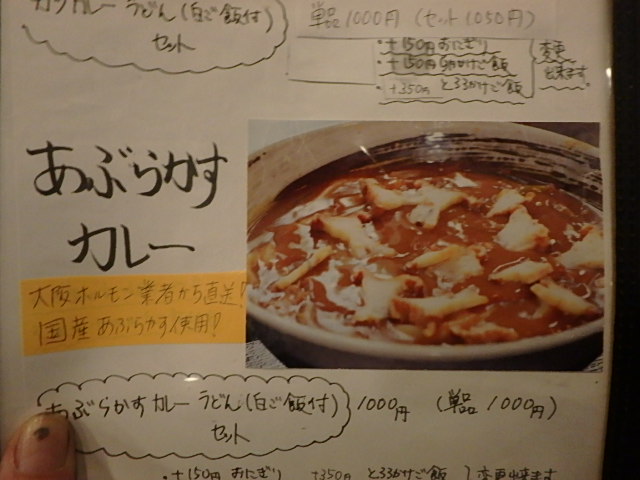 カツカレーうどん(白ご飯付)
セット
単品1000円(セット1050円)
・+150円おにぎり
・+150円卵かけご飯
・+350円 とろろかけご飯
変更
出来ます。
あぶらかす
カレー
大阪ホルモン業者から直送!
国産あぶらかす使用!
あぶらかすカレーうどん(白ご飯付)
セット
1000円 (単品 1000円)
・+150円おにぎり +350円 とろろかけご飯 変更出来ます